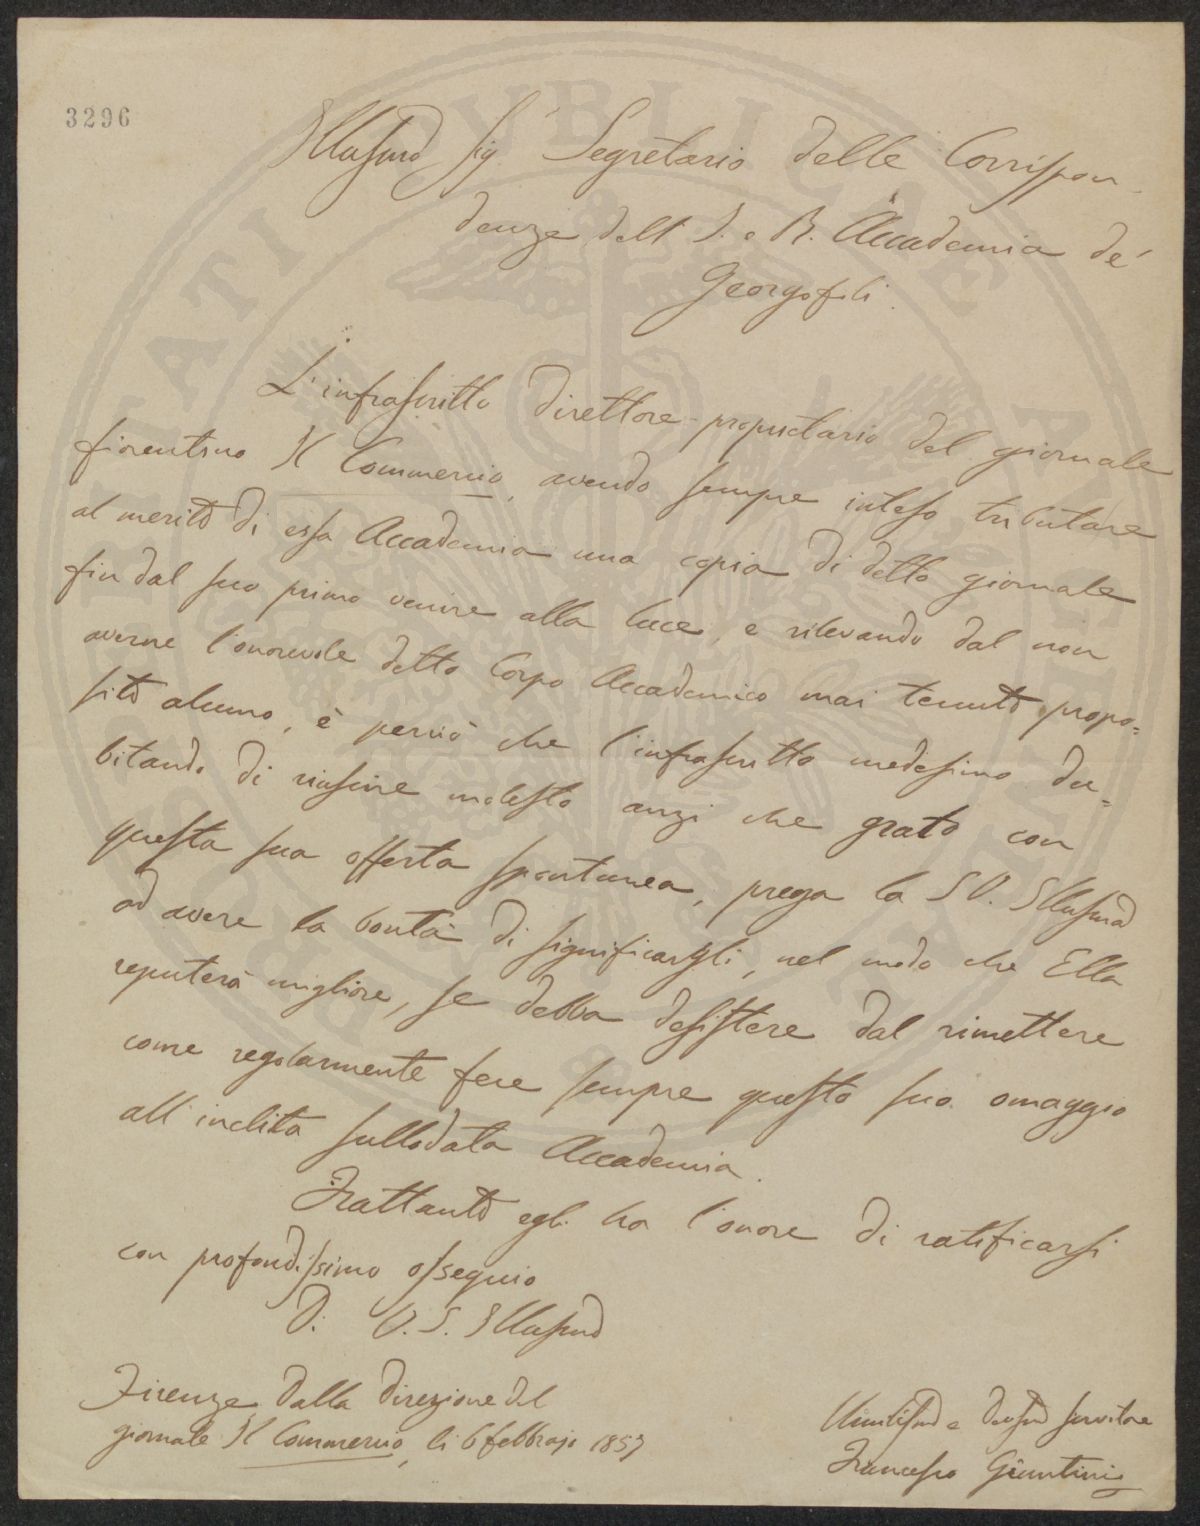 3296
Illusmo Sig. Segretario delle Corrispon-
denze dell' I. e R. Accademia de'
Georgofili.
L'infrascritto Direttore-proprietario del giornale
fiorentino Il Commercio, avendo sempre inteso tributare
al merito di essa Accademia una copia di detto giornale
fin dal suo primo venire alla luce, e rilevando dal non
averne l'onorevole detto Corpo Accademico mai tenuto propo=
sito alcuno, è perciò che l'infrascritto medesimo du=
bitando di riuscire molesto anzi che grato con
questa sua offerta spontanea, prega la S.V. Illusma
ad avere la bontà di significargli, nel modo che Ella
reputerà migliore, se debba desistere dal rimettere
come regolarmente fece sempre questo suo omaggio
all'inclita sullodata Accademia.
Frattanto egli ha l'onore di ratificarsi
con profondissimo ossequio
D. V. S. Illusma
Firenze dalla direzione del
giornale Il Commercio, li 6 febbrajo 1857
Umilismo e devotmo servitore
Francesco Giuntini
PVBLICAE VTILITATI